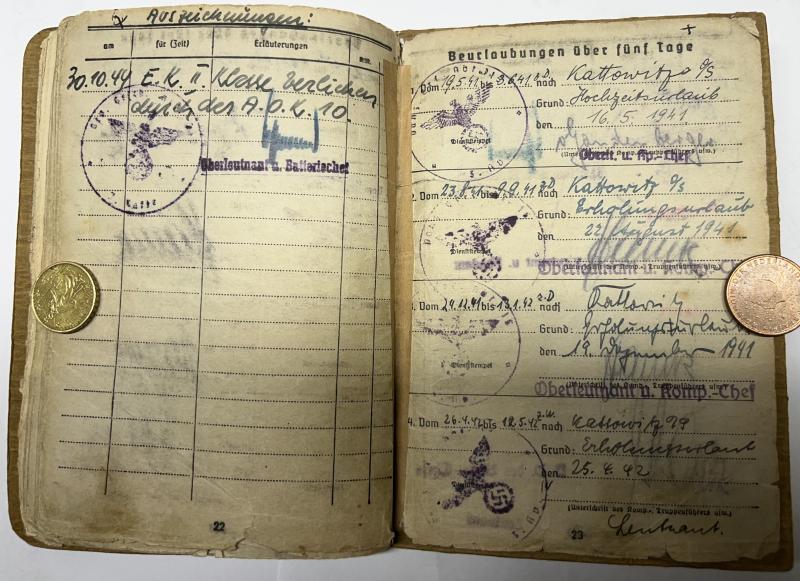 Auszeichnungen:
am
für (Zeit)
Erläuterungen
30.10.44 E.K. II. Klasse verliehen
durch das A.O.K. 10.
Oberleutnant u. Batteriechef
22
Beurlaubungen über fünf Tage
1. Vom 19.5.41 bis 3.6.41 z.D. nach Kattowitz o/S
Grund: Hochzeitsurlaub
den 16.5.1941
Dienststempel
Oberlt. u. Kp.-Chef
2. Vom bis 9.9.41 z.D. nach Kattowitz o/S
Grund: Erholungsurlaub
den 22. August 1941
Dienststempel
Oberleutnant u. Komp.-Chef
(Unterschrift des Komp.-, Truppenführers usw.)
3. Vom 24.12.41 bis 13.1.42 z.D. nach Kattowitz
Grund: Erholungsurlaub
den 19. Dezember 1941
Dienststempel
Oberleutnant u. Komp.-Chef
4. Vom 26.4.42 bis 12.5.42 z.W. nach Kattowitz
Grund: Erholungsurlaub
den 25.4.42
Dienststempel
(Unterschrift des Komp.-, Truppenführers usw.)
Leutnant.
23